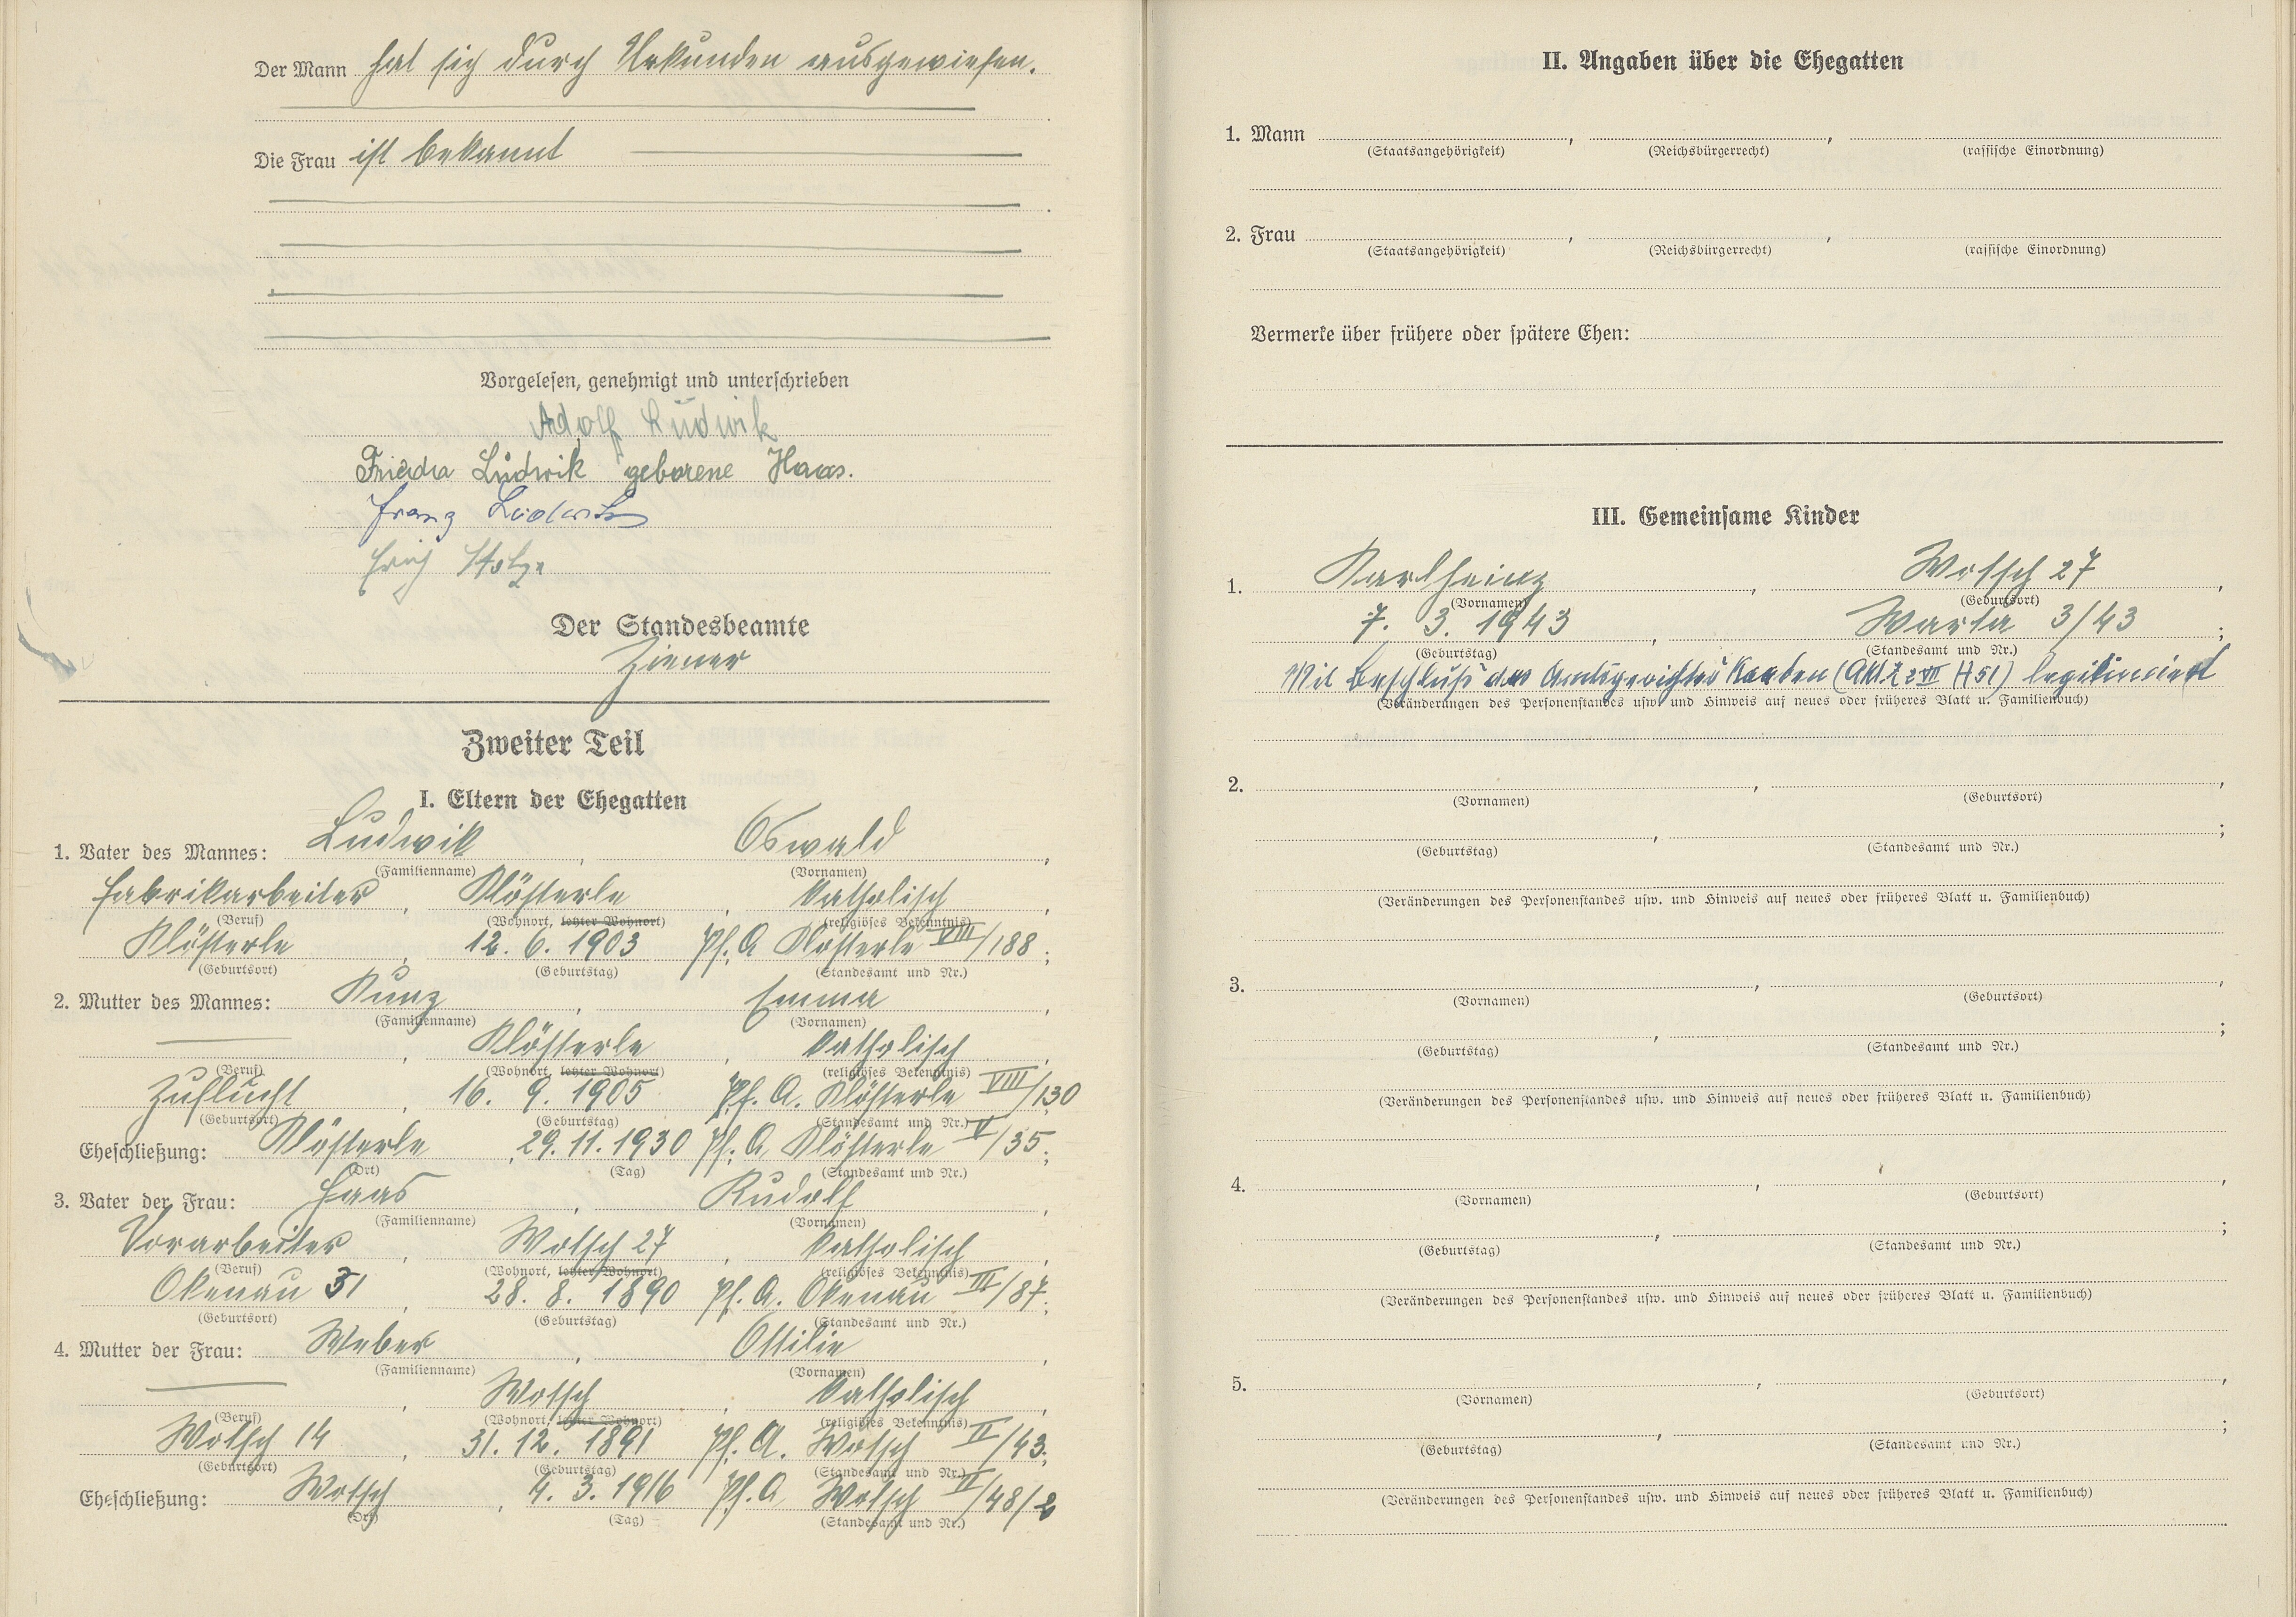 Der Mann hat sich durch Urkunden ausgewiesen.
Die Frau ist bekannt
Vorgelesen, genehmigt und unterschrieben
Adolf Ludwik
Frieda Ludwik geborene Haas.
Franz Ludwik
Erich Stolze
Der Standesbeamte
Ziener
Zweiter Teil
I. Eltern der Ehegatten
1. Vater des Mannes: Ludwik, Oswald,
(Familienname) (Vornamen)
Fabrikarbeiter, Klösterle, katholisch,
(Beruf) (Wohnort, letzter Wohnort) (religiöses Bekenntnis)
Klösterle, 12. 6. 1903 Pf. A Klösterle VIII/188;
(Geburtsort) (Geburtstag) (Standesamt und Nr.)
2. Mutter des Mannes: Kunz, Emma,
(Familienname) (Vornamen)
—, Klösterle, katholisch,
(Beruf) (Wohnort, letzter Wohnort) (religiöses Bekenntnis)
Zuflucht, 16. 9. 1905 Pf. A. Klösterle VIII/130
(Geburtsort) (Geburtstag) (Standesamt und Nr.)
Eheschließung: Klösterle, 29. 11. 1930 Pf. A Klösterle V/35;
(Ort) (Tag) (Standesamt und Nr.)
3. Vater der Frau: Haas, Rudolf,
(Familienname) (Vornamen)
Vorarbeiter, Wotsch 27, katholisch,
(Beruf) (Wohnort, letzter Wohnort) (religiöses Bekenntnis)
Okenau 31, 28. 8. 1890 Pf. A. Okenau III/87;
(Geburtsort) (Geburtstag) (Standesamt und Nr.)
4. Mutter der Frau: Weber, Ottilie,
(Familienname) (Vornamen)
—, Wotsch, katholisch,
(Beruf) (Wohnort, letzter Wohnort) (religiöses Bekenntnis)
Wotsch 14, 31. 12. 1891 Pf. A. Wotsch II/43;
(Geburtsort) (Geburtstag) (Standesamt und Nr.)
Eheschließung: Wotsch, 4. 3. 1916 Pf. A Wotsch II/48/2
(Ort) (Tag) (Standesamt und Nr.)
II. Angaben über die Ehegatten
1. Mann , ,
(Staatsangehörigkeit) (Reichsbürgerrecht) (rassische Einordnung)
2. Frau , ,
(Staatsangehörigkeit) (Reichsbürgerrecht) (rassische Einordnung)
Vermerke über frühere oder spätere Ehen:
III. Gemeinsame Kinder
1. Karlheinz, Wotsch 27,
(Vornamen) (Geburtsort)
7. 3. 1943, Warta 3/43;
(Geburtstag) (Standesamt und Nr.)
Mit Beschluß des Amtsgerichtes Kaaden legitimiert
(Veränderungen des Personenstandes usw. und Hinweis auf neues oder früheres Blatt u. Familienbuch)
2. , ,
(Vornamen) (Geburtsort)
, ;
(Geburtstag) (Standesamt und Nr.)
(Veränderungen des Personenstandes usw. und Hinweis auf neues oder früheres Blatt u. Familienbuch)
3. , ,
(Vornamen) (Geburtsort)
, ;
(Geburtstag) (Standesamt und Nr.)
(Veränderungen des Personenstandes usw. und Hinweis auf neues oder früheres Blatt u. Familienbuch)
4. , ,
(Vornamen) (Geburtsort)
, ;
(Geburtstag) (Standesamt und Nr.)
(Veränderungen des Personenstandes usw. und Hinweis auf neues oder früheres Blatt u. Familienbuch)
5. , ,
(Vornamen) (Geburtsort)
, ;
(Geburtstag) (Standesamt und Nr.)
(Veränderungen des Personenstandes usw. und Hinweis auf neues oder früheres Blatt u. Familienbuch)